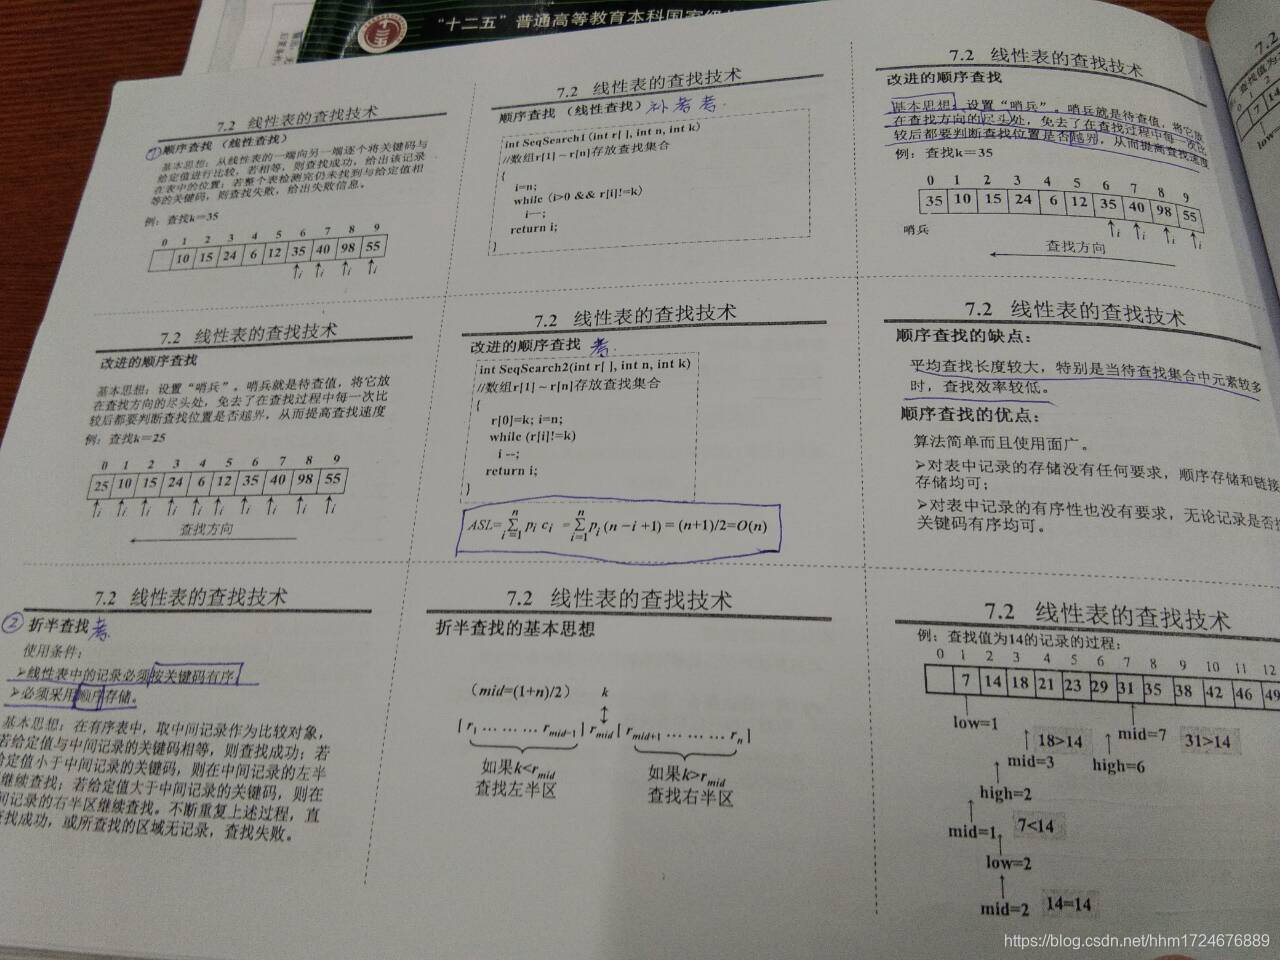 "十二五"普通高等教育本科国家级
7.2 线性表的查找技术
①顺序查找（线性查找）
基本思想：从线性表的一端向另一端逐个将关键码与
给定值进行比较，若相等，则查找成功，给出该记录
在表中的位置；若整个表检测完仍未找到与给定值相
等的关键码，则查找失败，给出失败信息。
例：查找k＝35
0 1 2 3 4 5 6 7 8 9
10 15 24 6 12 35 40 98 55
i i i i
7.2 线性表的查找技术
顺序查找（线性查找） 补考考.
int SeqSearch1 (int r[ ], int n, int k)
//数组r[1] ~ r[n]存放查找集合
{
i=n;
while (i>0 && r[i]!=k)
i--;
return i;
}
7.2 线性表的查找技术
改进的顺序查找
基本思想：设置“哨兵”。哨兵就是待查值，将它放
在查找方向的尽头处，免去了在查找过程中每一次比
较后都要判断查找位置是否越界，从而提高查找速度
例：查找k＝35
0 1 2 3 4 5 6 7 8 9
35 10 15 24 6 12 35 40 98 55
哨兵
i i i i
查找方向
7.2 线性表的查找技术
改进的顺序查找
基本思想：设置“哨兵”。哨兵就是待查值，将它放
在查找方向的尽头处，免去了在查找过程中每一次比
较后都要判断查找位置是否越界，从而提高查找速度
例：查找k＝25
0 1 2 3 4 5 6 7 8 9
25 10 15 24 6 12 35 40 98 55
i i i i i i i i i i
查找方向
7.2 线性表的查找技术
改进的顺序查找 考.
int SeqSearch2(int r[ ], int n, int k)
//数组r[1] ~ r[n]存放查找集合
{
r[0]=k; i=n;
while (r[i]!=k)
i --;
return i;
}
ASL= n∑i=1 pi ci = n∑i=1 pi (n－i +1) = (n+1)/2=O(n)
7.2 线性表的查找技术
顺序查找的缺点：
平均查找长度较大，特别是当待查找集合中元素较多
时，查找效率较低。
顺序查找的优点：
算法简单而且使用面广。
➢对表中记录的存储没有任何要求，顺序存储和链接
存储均可；
➢对表中记录的有序性也没有要求，无论记录是否按
关键码有序均可。
7.2 线性表的查找技术
②折半查找 考.
使用条件：
➢线性表中的记录必须按关键码有序
➢必须采用顺序存储。
基本思想：在有序表中，取中间记录作为比较对象，
若给定值与中间记录的关键码相等，则查找成功；若
给定值小于中间记录的关键码，则在中间记录的左半
继续查找；若给定值大于中间记录的关键码，则在
间记录的右半区继续查找。不断重复上述过程，直
找成功，或所查找的区域无记录，查找失败。
7.2 线性表的查找技术
折半查找的基本思想
（mid=(1+n)/2） k
[ r1 … … … rmid−1 ] rmid [ rmid+1 … … … rn ]
如果k<rmid 如果k>rmid
查找左半区 查找右半区
7.2 线性表的查找技术
例：查找值为14的记录的过程：
0 1 2 3 4 5 6 7 8 9 10 11 12
7 14 18 21 23 29 31 35 38 42 46 49
low=1 mid=7 31>14
18>14
mid=3 high=6
high=2
mid=1 7<14
low=2
mid=2 14=14
7.2
查找值为
7 14
low
https://blog.csdn.net/hhm1724676889